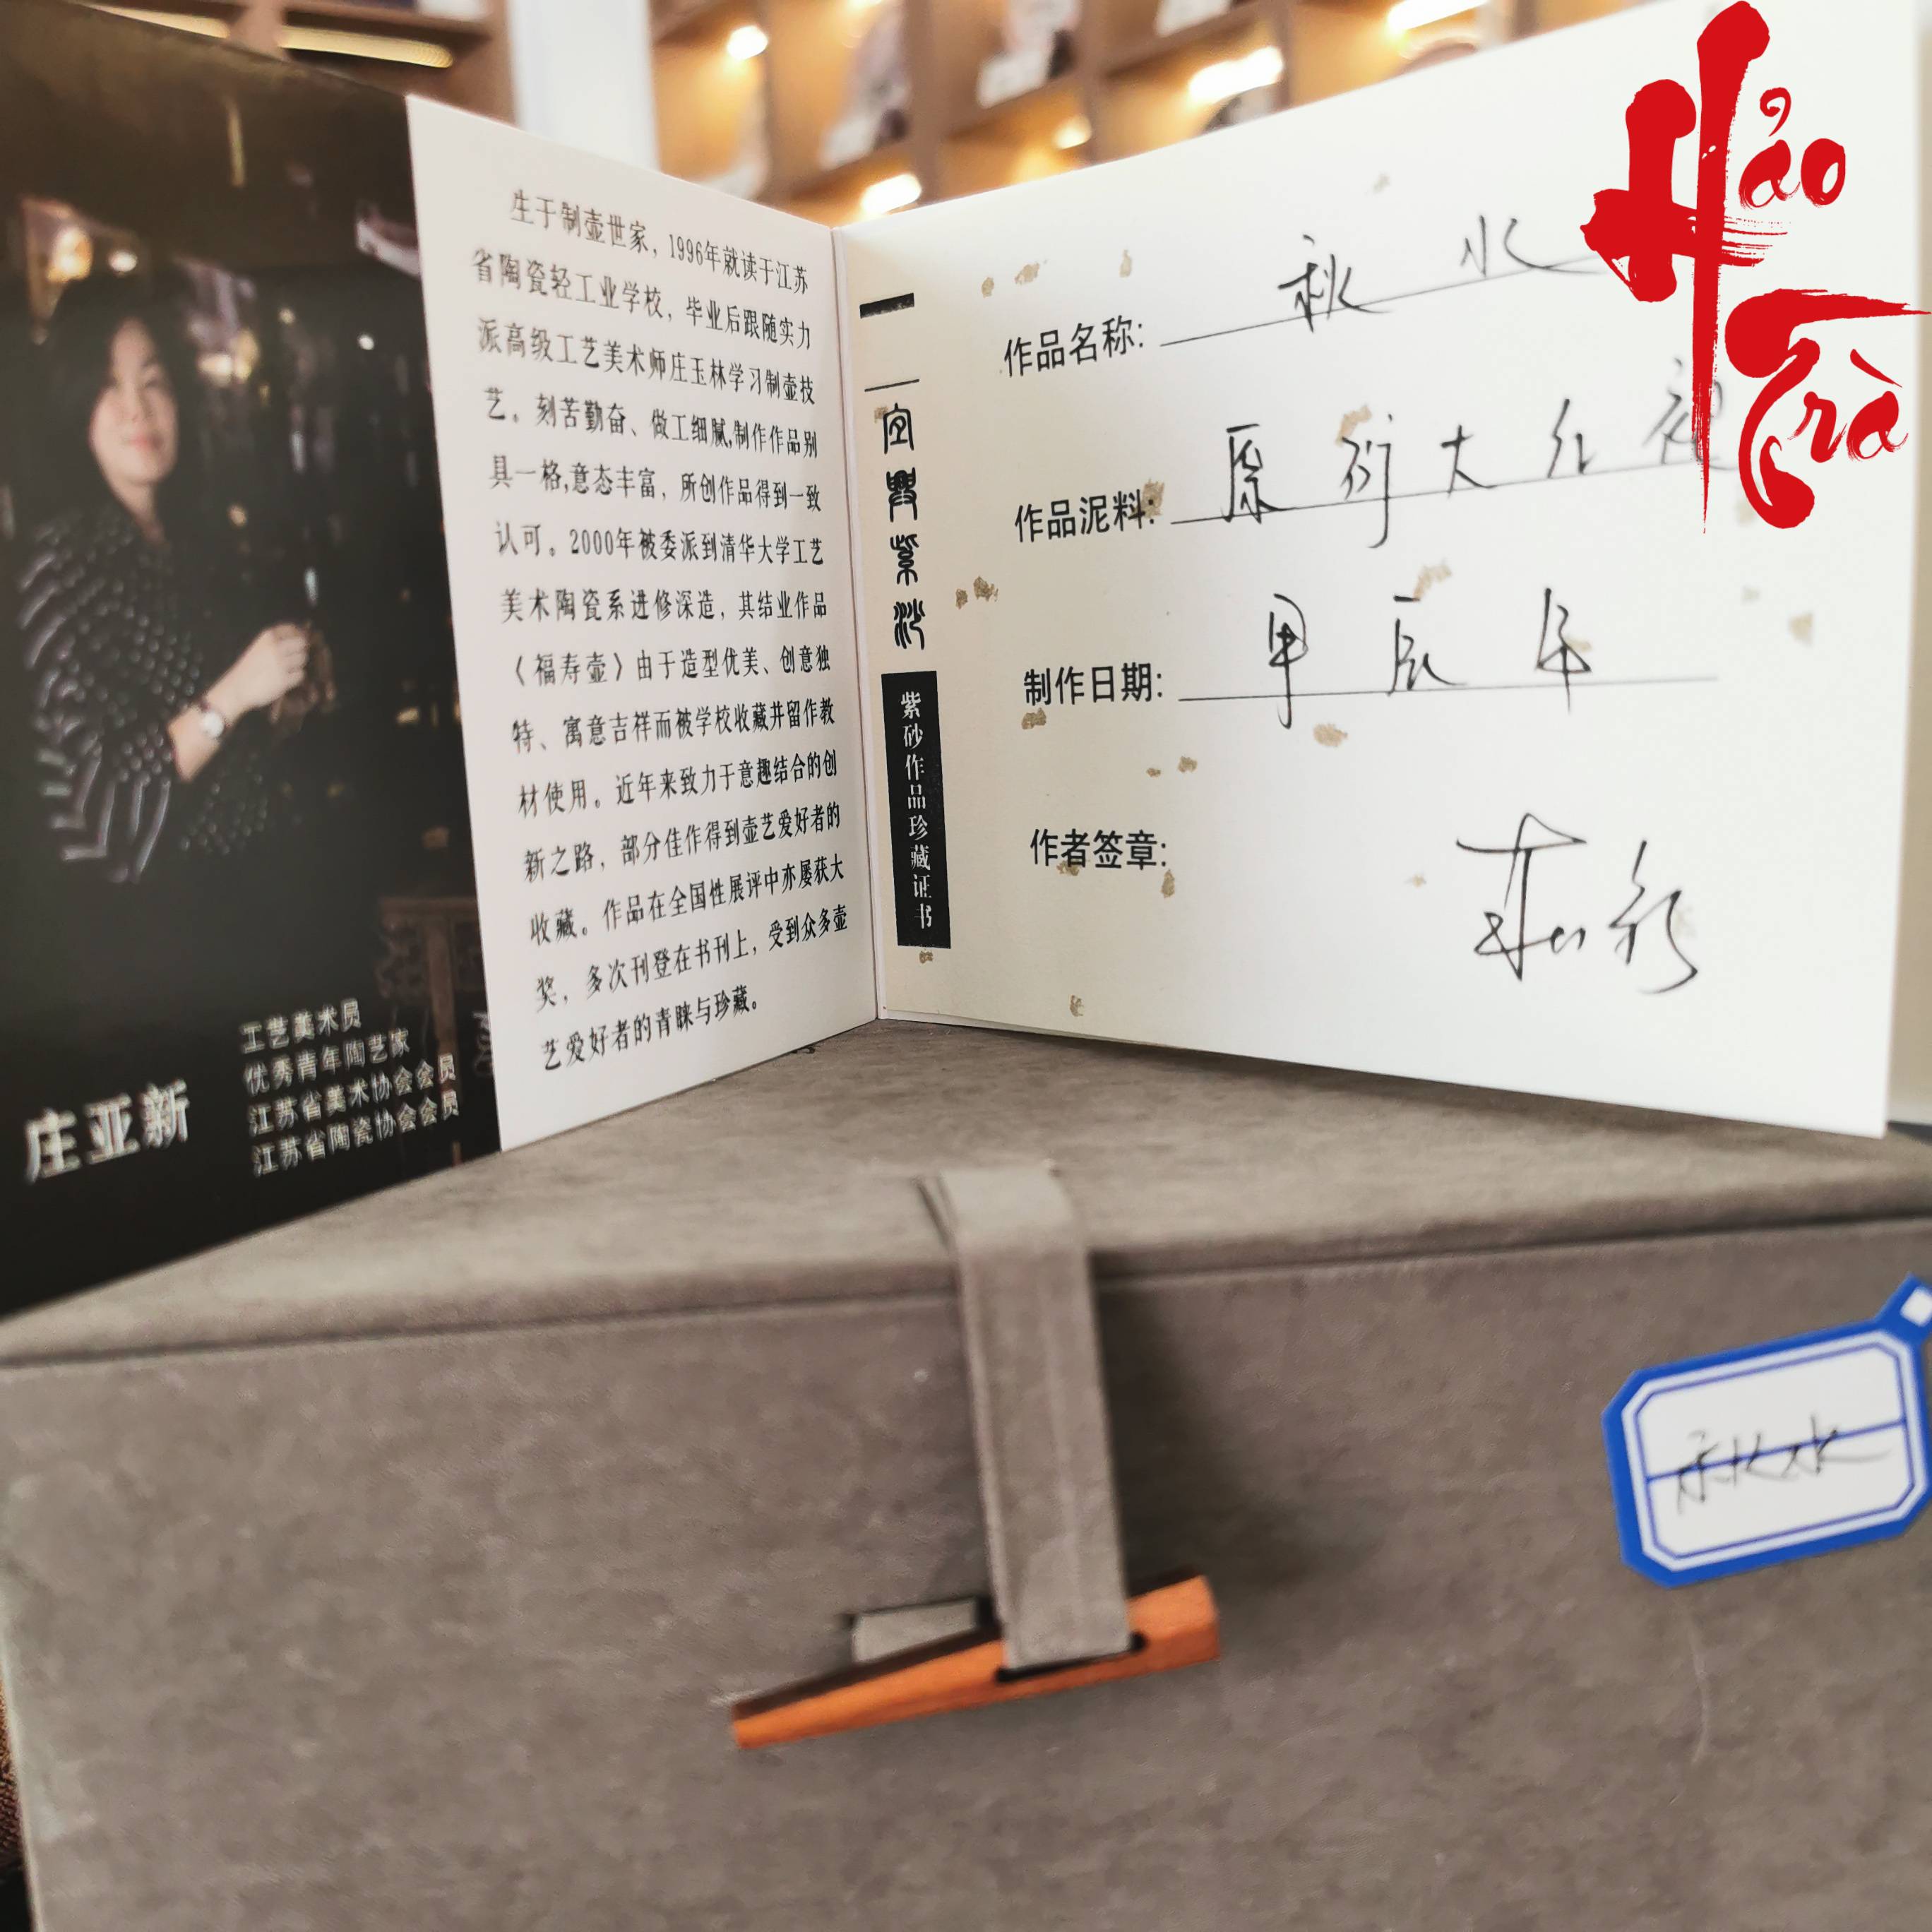 庄亚新
工艺美术员
优秀青年陶艺家
江苏省美术协会会员
江苏省陶瓷协会会员
生于制壶世家，1996年就读于江苏
省陶瓷轻工业学校，毕业后跟随实力
派高级工艺美术师庄玉林学习制壶技
艺。刻苦勤奋、做工细腻,制作作品别
具一格,意态丰富，所创作品得到一致
认可。2000年被委派到清华大学工艺
美术陶瓷系进修深造，其结业作品
《福寿壶》由于造型优美、创意独
特、寓意吉祥而被学校收藏并留作教
材使用。近年来致力于意趣结合的创
新之路，部分佳作得到壶艺爱好者的
收藏。作品在全国性展评中亦屡获大
奖，多次刊登在书刊上，受到众多壶
艺爱好者的青睐与珍藏。
宜興紫沙
紫砂作品珍藏证书
作品名称: 秋水
作品泥料: 原矿大红袍
制作日期: 甲辰年
作者签章:
Hảo
Trà
秋水